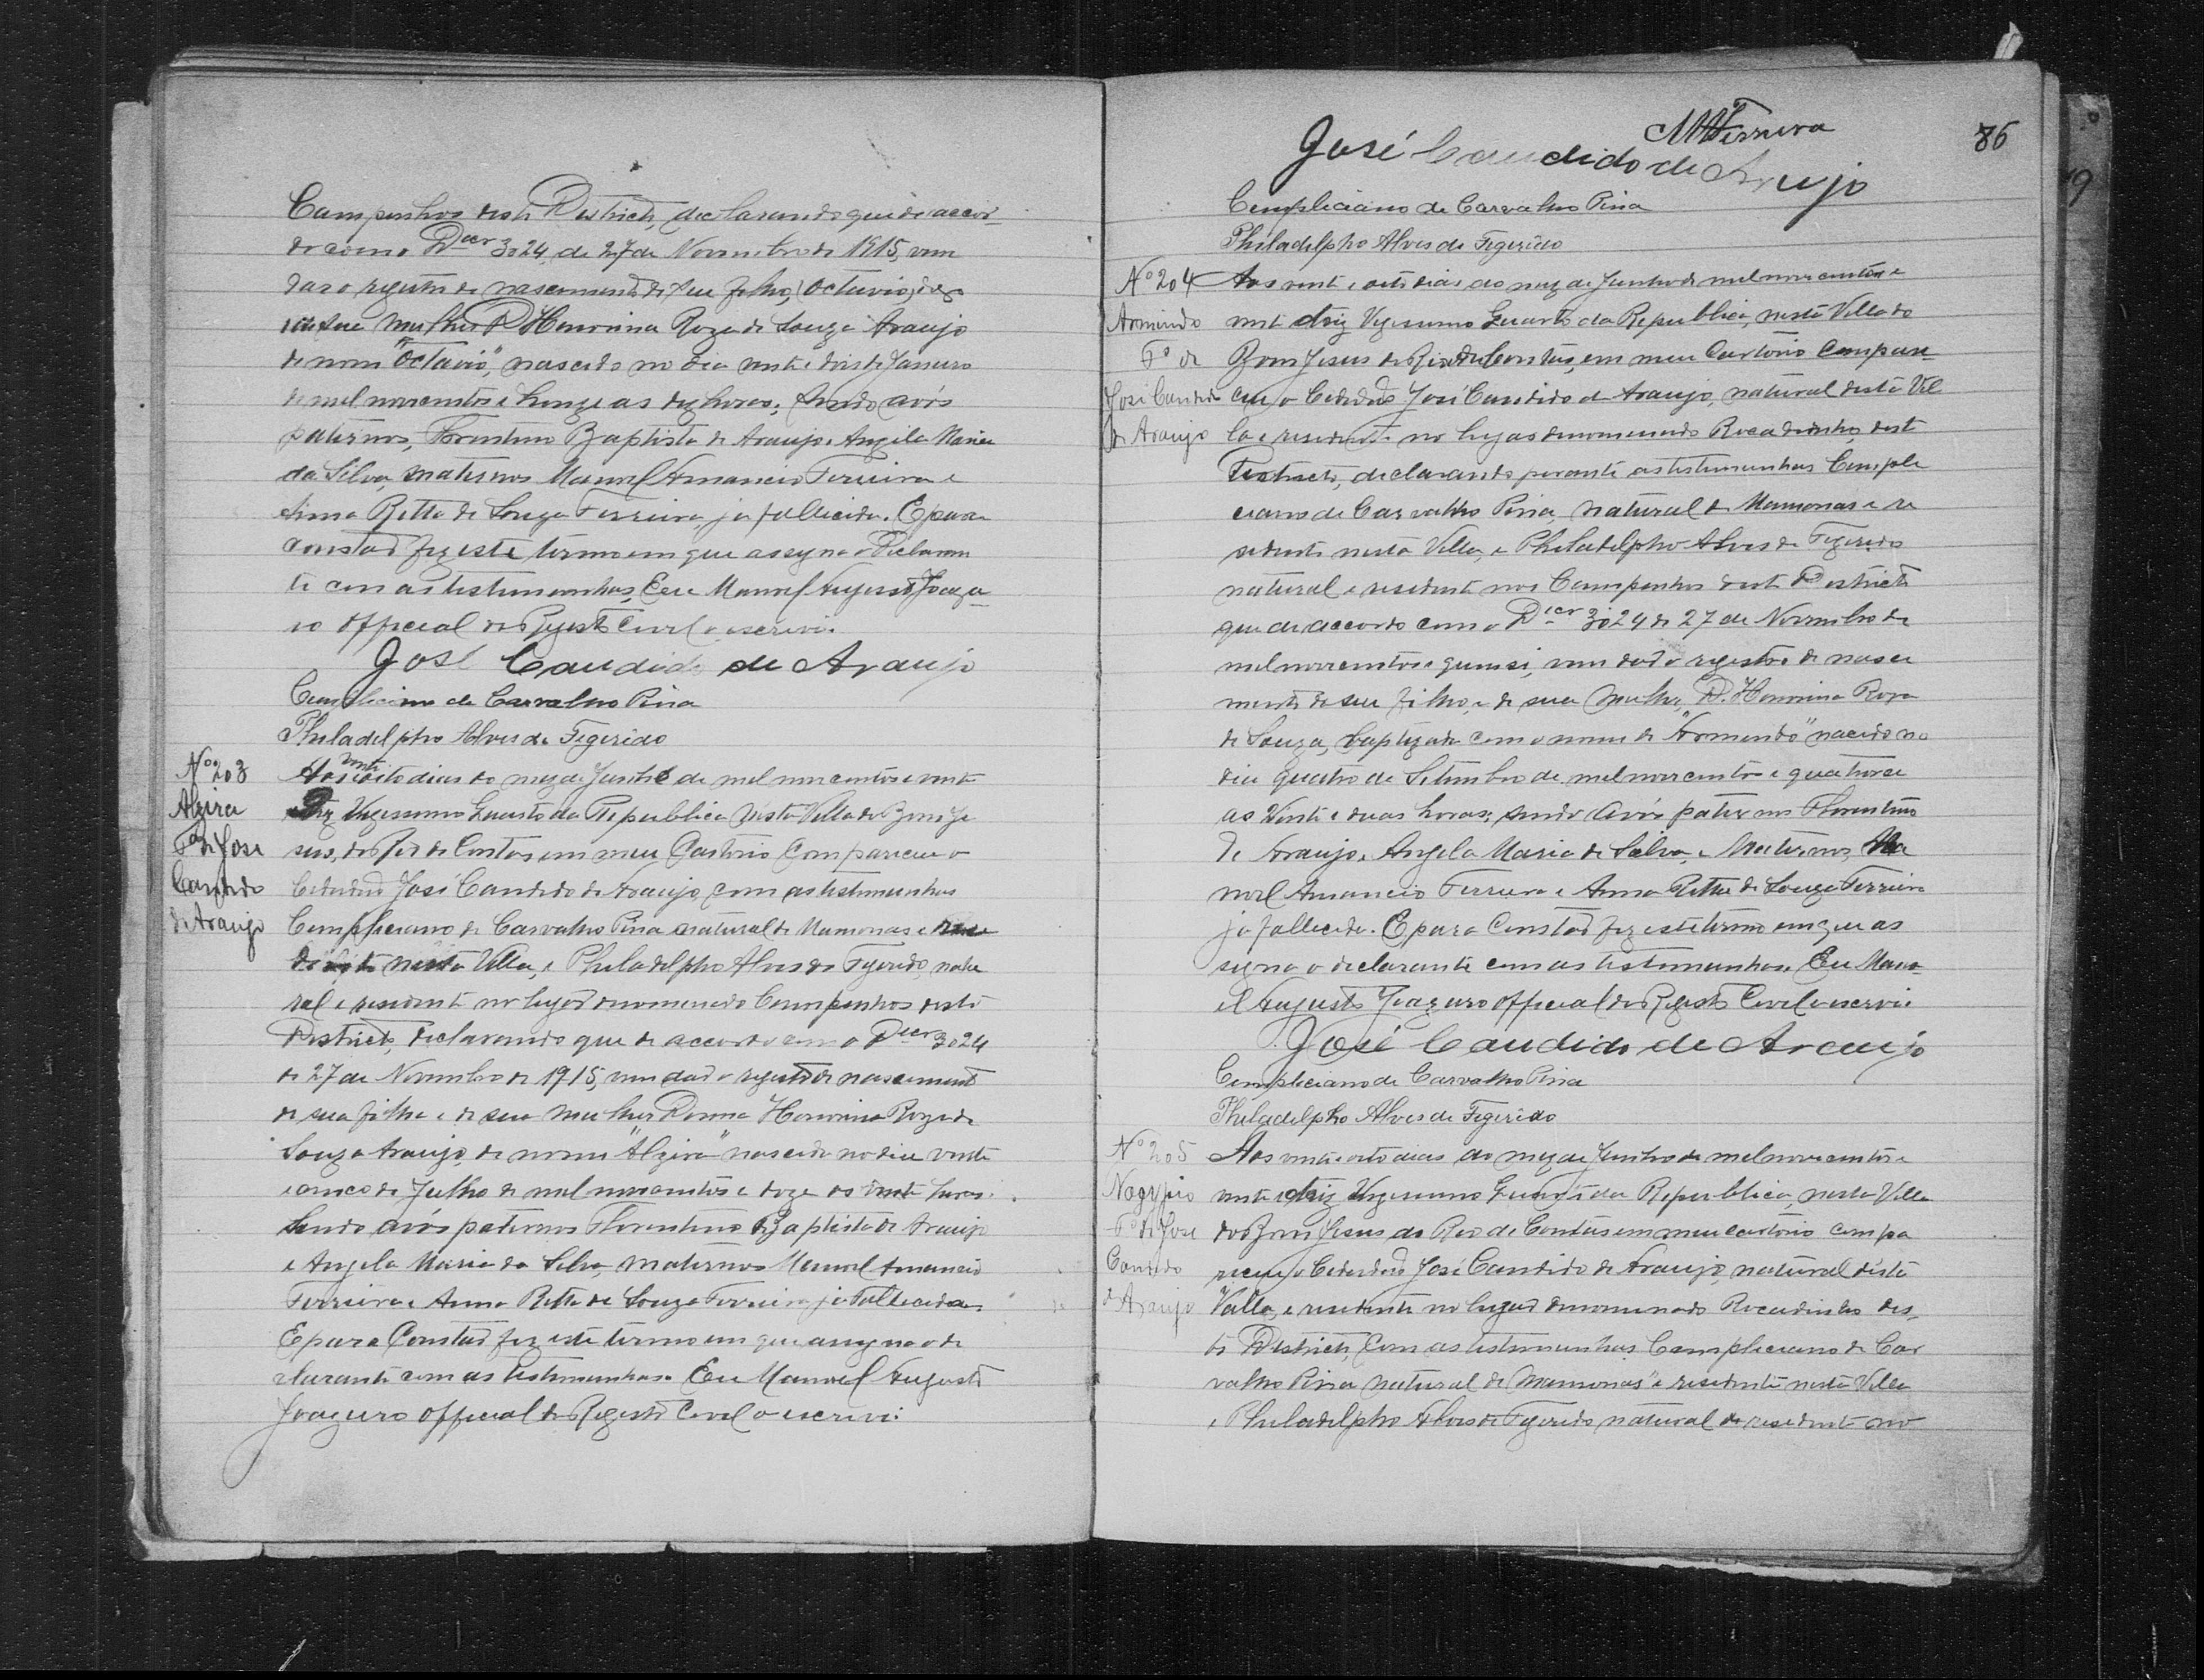 Campinhos deste Districto, declarando que de accor-
do com o Decr 3024, de 27 de Novembro de 1915, vem
dar o registro de nascimento de seu filho, (Octavio) de
sua mulher D Honorina Roza de Souza Araujo
de nome "Octavio", nascido no dia vinte e dois de Janeiro
de mil novecentos e honze as dez horas; sendo avós
paternos, Florentino Baptista de Araujo e Angela Maria
da Silva, maternos Manoel Amancio Ferreira e
Anna Ritta de Souza Ferreira ja fallecida. E para
constar fiz este termo em que assigna o declaran
te com as testemunhas, Eu Manoel Augusto Joazei-
ro official do Registo Civel o escrevi.
José Candido de Araujo
Cempliciano de Carvalho Pina
Philadelpho Alves de Figerêdo
Nº 203
Alzira
Fª de José
Candido
de Araujo
vinte
Aos e oito dias do mez de Junho de mil novecentos e vinte
e Dois Vigessimo Quarto da Republica nesta Villa do Bom Je
sus, do Rio de Contas em meu Cartorio Compareceu o
Cidadão José Candido de Araujo, com as testemunhas
Cempliciano de Carvalho Pina natural de Mamonas e resi
dente nesta Villa, e Philadelpho Alves de Figerêdo, natu
ral e residente no lugar denominado Campinhos deste
Districto, declarando que de accordo com o Decr 3024
de 27 de Novembro de 1915, vem dar o registo de nascimento
de sua filha e de sua mulher Donna Honorina Roza de
Souza Araujo, de nome "Alzira" nascida no dia vinte
e cinco de Julho de mil novecentos e doze as vinte horas.
Sendo avós paternos Florentino Baptista de Araujo
e Angela Maria da Silva, maternos Manoel Amancio
Ferreira e Anna Ritta de Souza Ferreira ja Fallecida.
E para Constar fiz este termo em que assigna o de
clarante com as testemunhas. Eu Manoel Augusto
Joazeiro official do Registo Civel o escrevi.
86
MAFerreira
José Candido de Araujo
Cempliciano de Carvalho Pina
Philadelpho Alves de Figerêdo
Nº 204
Armindo
Fº de
José Candido
de Araujo
Aos vinte e oito dias do mez de Junho de mil novecentos e
vinte e dois Vigessimo Quarto da Republica, nesta Villa do
Bom Jesus do Rio de Contas, em meu Cartorio Compare-
ceu o Cidadão José Candido de Araujo, natural desta Vil
la e residente no lugar denominado Rocadinho, deste
Districto, declarando perante as testemunhas Cempli
ciano de Carvalho Pina, natural de Mamonas e re
sidente nesta Villa, e Philadelpho Alves de Figerêdo
natural e residente nos Campinhos deste Districto
que de accordo com o Decr 3024 de 27 de Novembro de
mil novecentos e quinsi, vem dar o registro de nasci
mento de seu filho, e de sua mulher, D. Honorina Roza
de Souza, baptizado com o nome de "Armindo" nacido no
dia quatro de Setembro de mil novecentos e quatorze
as vinte e duas horas; sendo avós paternos Florentino
de Araujo e Angela Maria da Silva, e Maternos, Ma
noel Amancio Ferreira e Anna Ritta de Souza Ferreira
ja fallecida. E para Constar fiz este termo em que as
signa o declarante com as testemunhas. Eu Mano-
el Augusto Joazeiro official do Registo Civel o escrevi.
José Candido de Araujo
Cempliciano de Carvalho Pina
Philadelpho Alves de Figerêdo
Nº 205
Fº de José
Candido
de Araujo
Aos vinte e oito dias do mez de Junho de mil novecentos e
vinte e dois Vigessimo Quarto da Republica, nesta Villa
do Bom Jesus do Rio de Contas em meu cartorio compa
receu o Cidadão José Candido de Araujo natural desta
Villa, e residente no lugar denominado Rocadinho des-
te Districto, Com as testemunhas Cempliciano de Car
valho Pina natural de "Mamonas" e residente nesta Villa
e Philadelpho Alves de Figerêdo natural e residente no